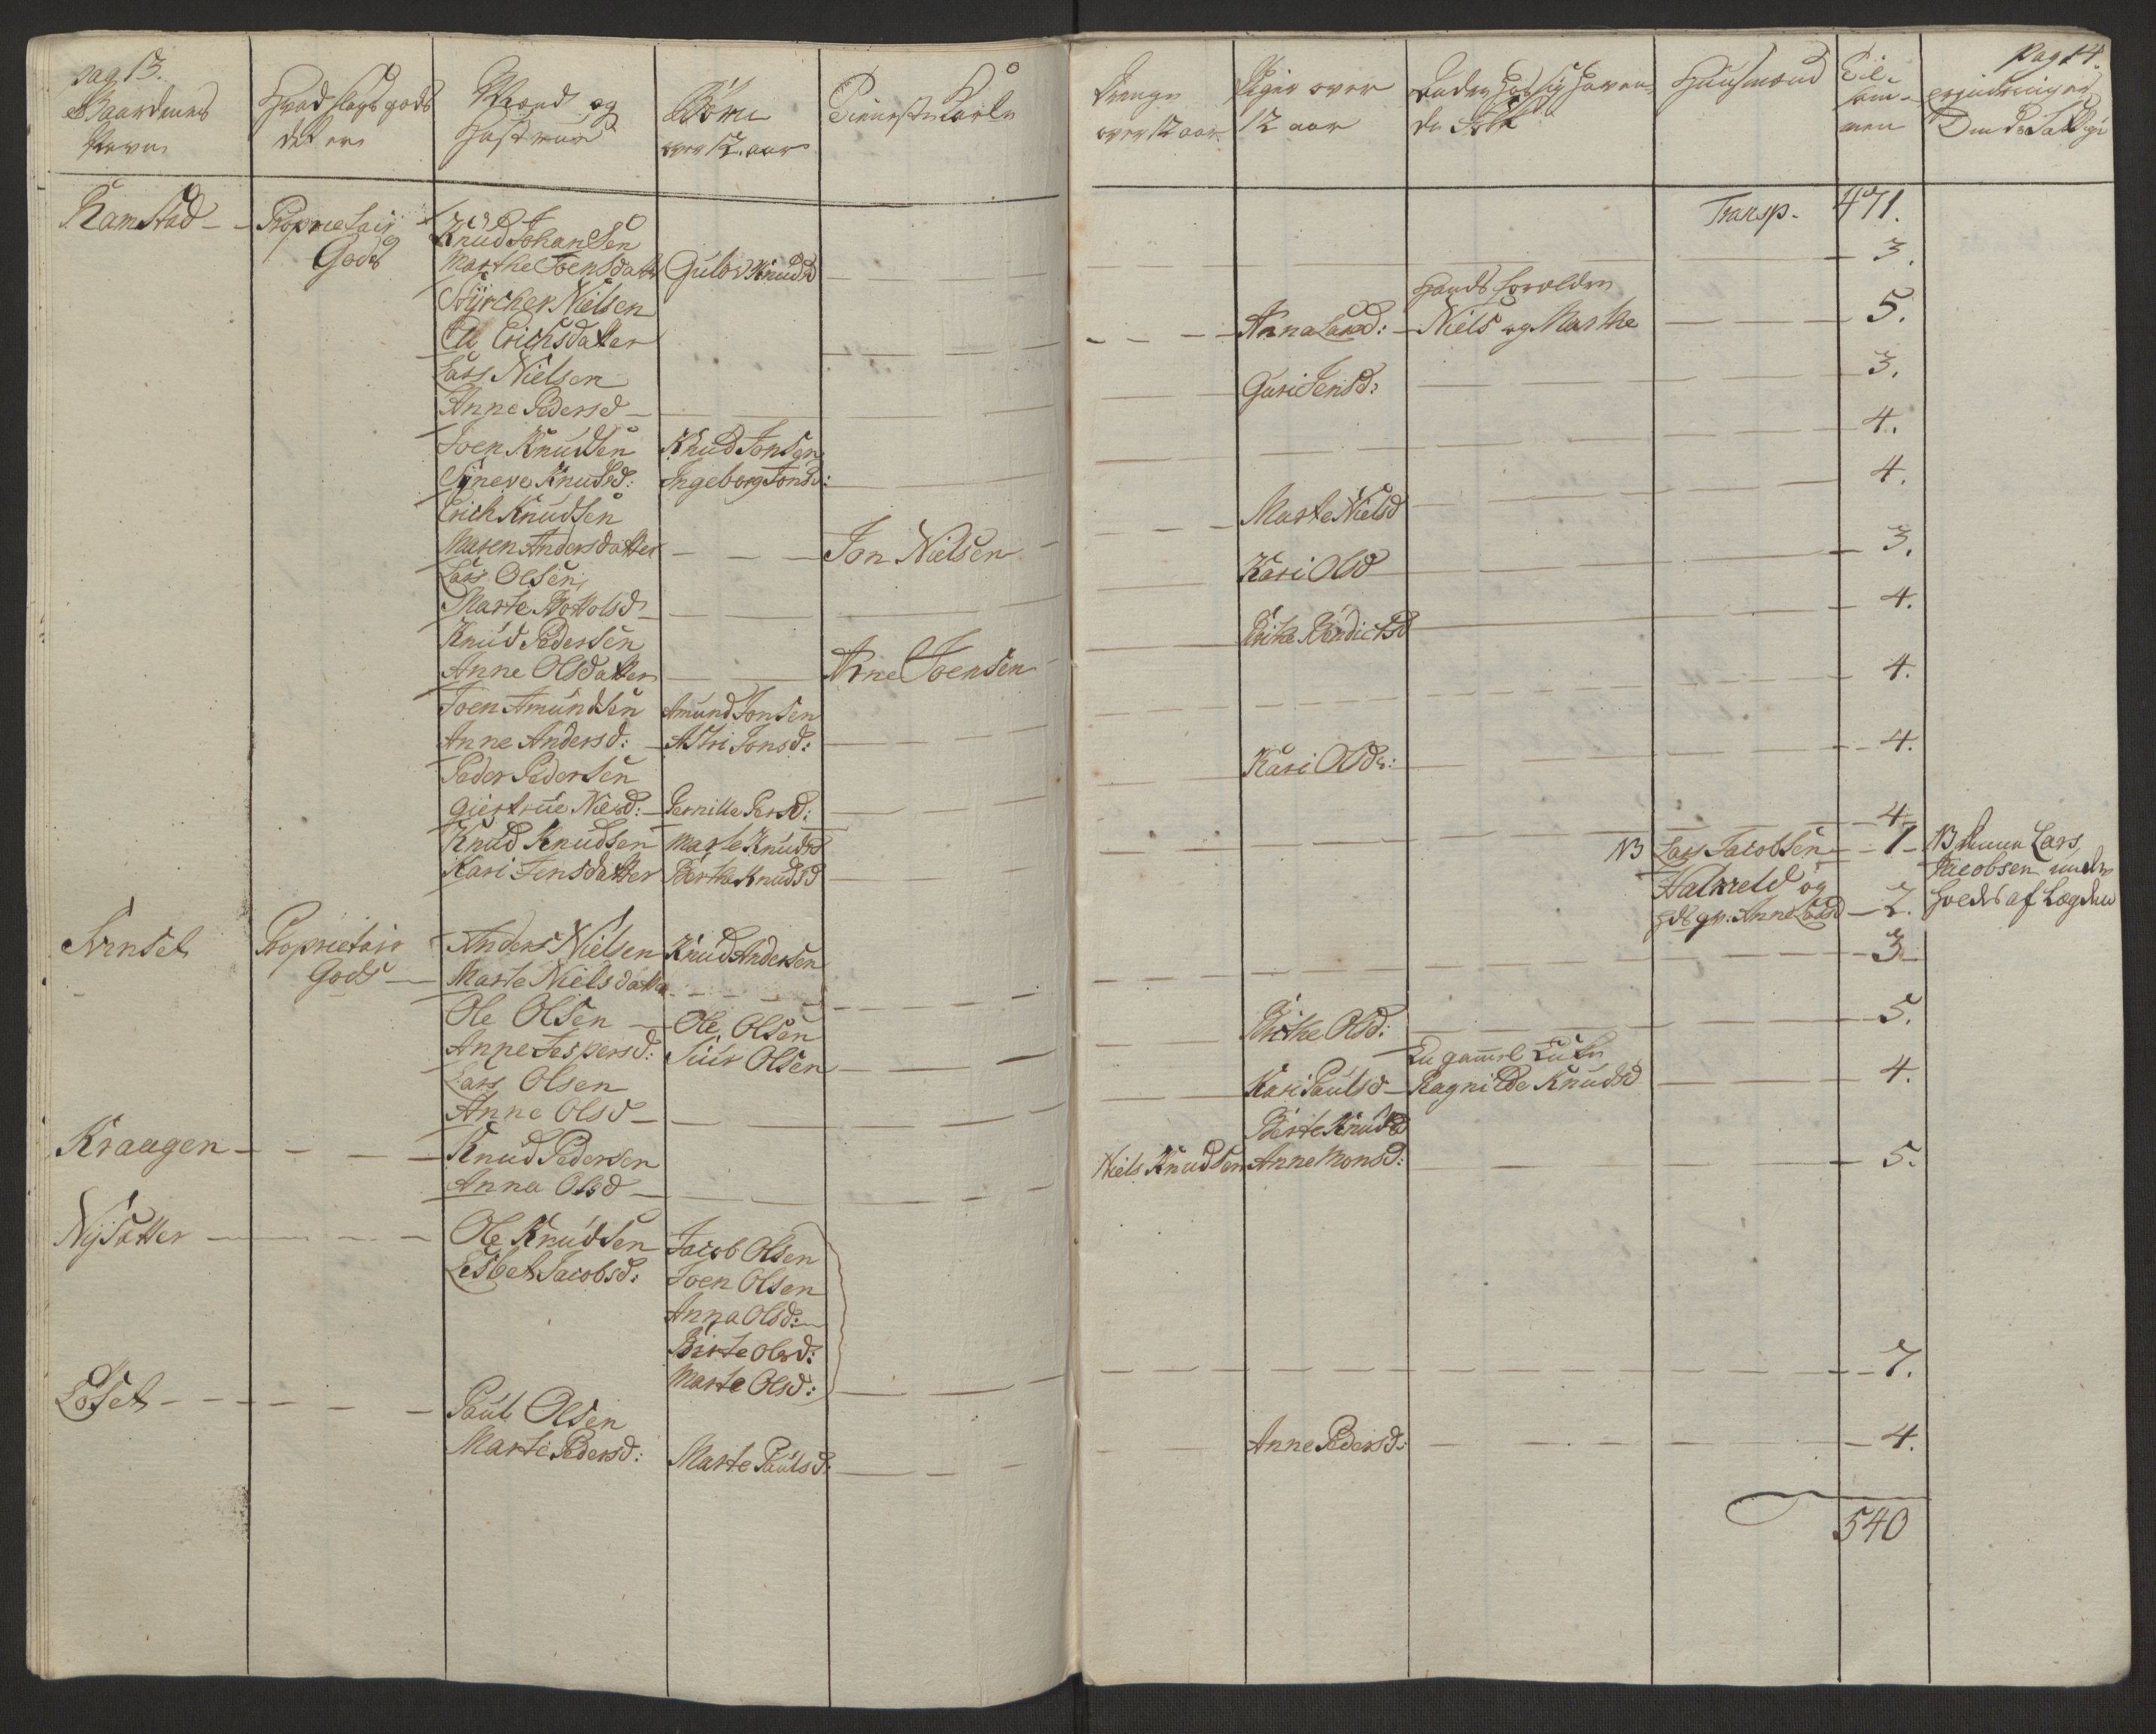 pag 13.
Gaardenes
Navn
Hvad slags gods
det er
Mænd og
Hustruer
Børn
over 12. aar
Tieneste Karle
Ramstad - - Proprietair
Gods
Knud Johansen
Marthe Joensdatter Gulov Knudsd
Styrcher Nielsen
Eli Erichsdatter
Lars Nielsen
Anne Pedersd
Joen Knudsen Knud Jonsen
Syneve Knudsd: Ingeborg Jonsd:
Erich Knudsen
Maren Andersdatter - - - Jon Nielsen
Lars Olsen
Marte
Knud Pedersen
Anne Olsdatter Arne Joensen
Joen Amundsen Amund Jonsen
Anne Andersd: - Astri Jonsd:
Peder Pedersen
Giertrue Nielsd: - Pernille Persd:
Knud Knudsen Marte Knudsd
Kari Jensdatter Berthe Knudsd
Arnset Proprietair
Gods
Anders Nielsen Knud Andersen
Marte Nielsdatter
Ole Olsen - Ole Olsen
Anne Jespersd: Siur Olsen
Lars Olsen
Anne Olsd
Kraagen - - - - Knud Pedersen
Anna Olsd
Nysætter - - - - Ole Knudsen Jacob Olsen
Lisbet Jacobsd: Joen Olsen
Anna Olsd:
Birte Olsd:
Marte Olsd:
Løset - - - - Paul Olsen
Marte Pedersd: Marte Paulsd:
pag 14.
Drenge
over 12 aar
Piger over
12 aar
Huusmænd
Til-
sam-
men
Transp. 471.
3.
Hands forældre
Anna Larsd: - Niels og Marthe 5.
Guri Jensd: 3.
4.
Marte Nielsd 4.
Kari Olsd 3.
Birthe Bendictsd 4.
4.
Kari Olsd: 4.
4
NB Lars Jacobsen - 1 - NB denne Lars
Jacobsen under
Halvreld og
Hds qv. Anne Larsd - 2. holdes af Lægden
3
Birthe Olsd: 5.
En gammel
Kari Paulsd - Ragnilde Knudsd 4.
Berte Knudsd
Niels Knudsen Anne Monsd: 5.
7.
Anne Pedersd: 4.
540